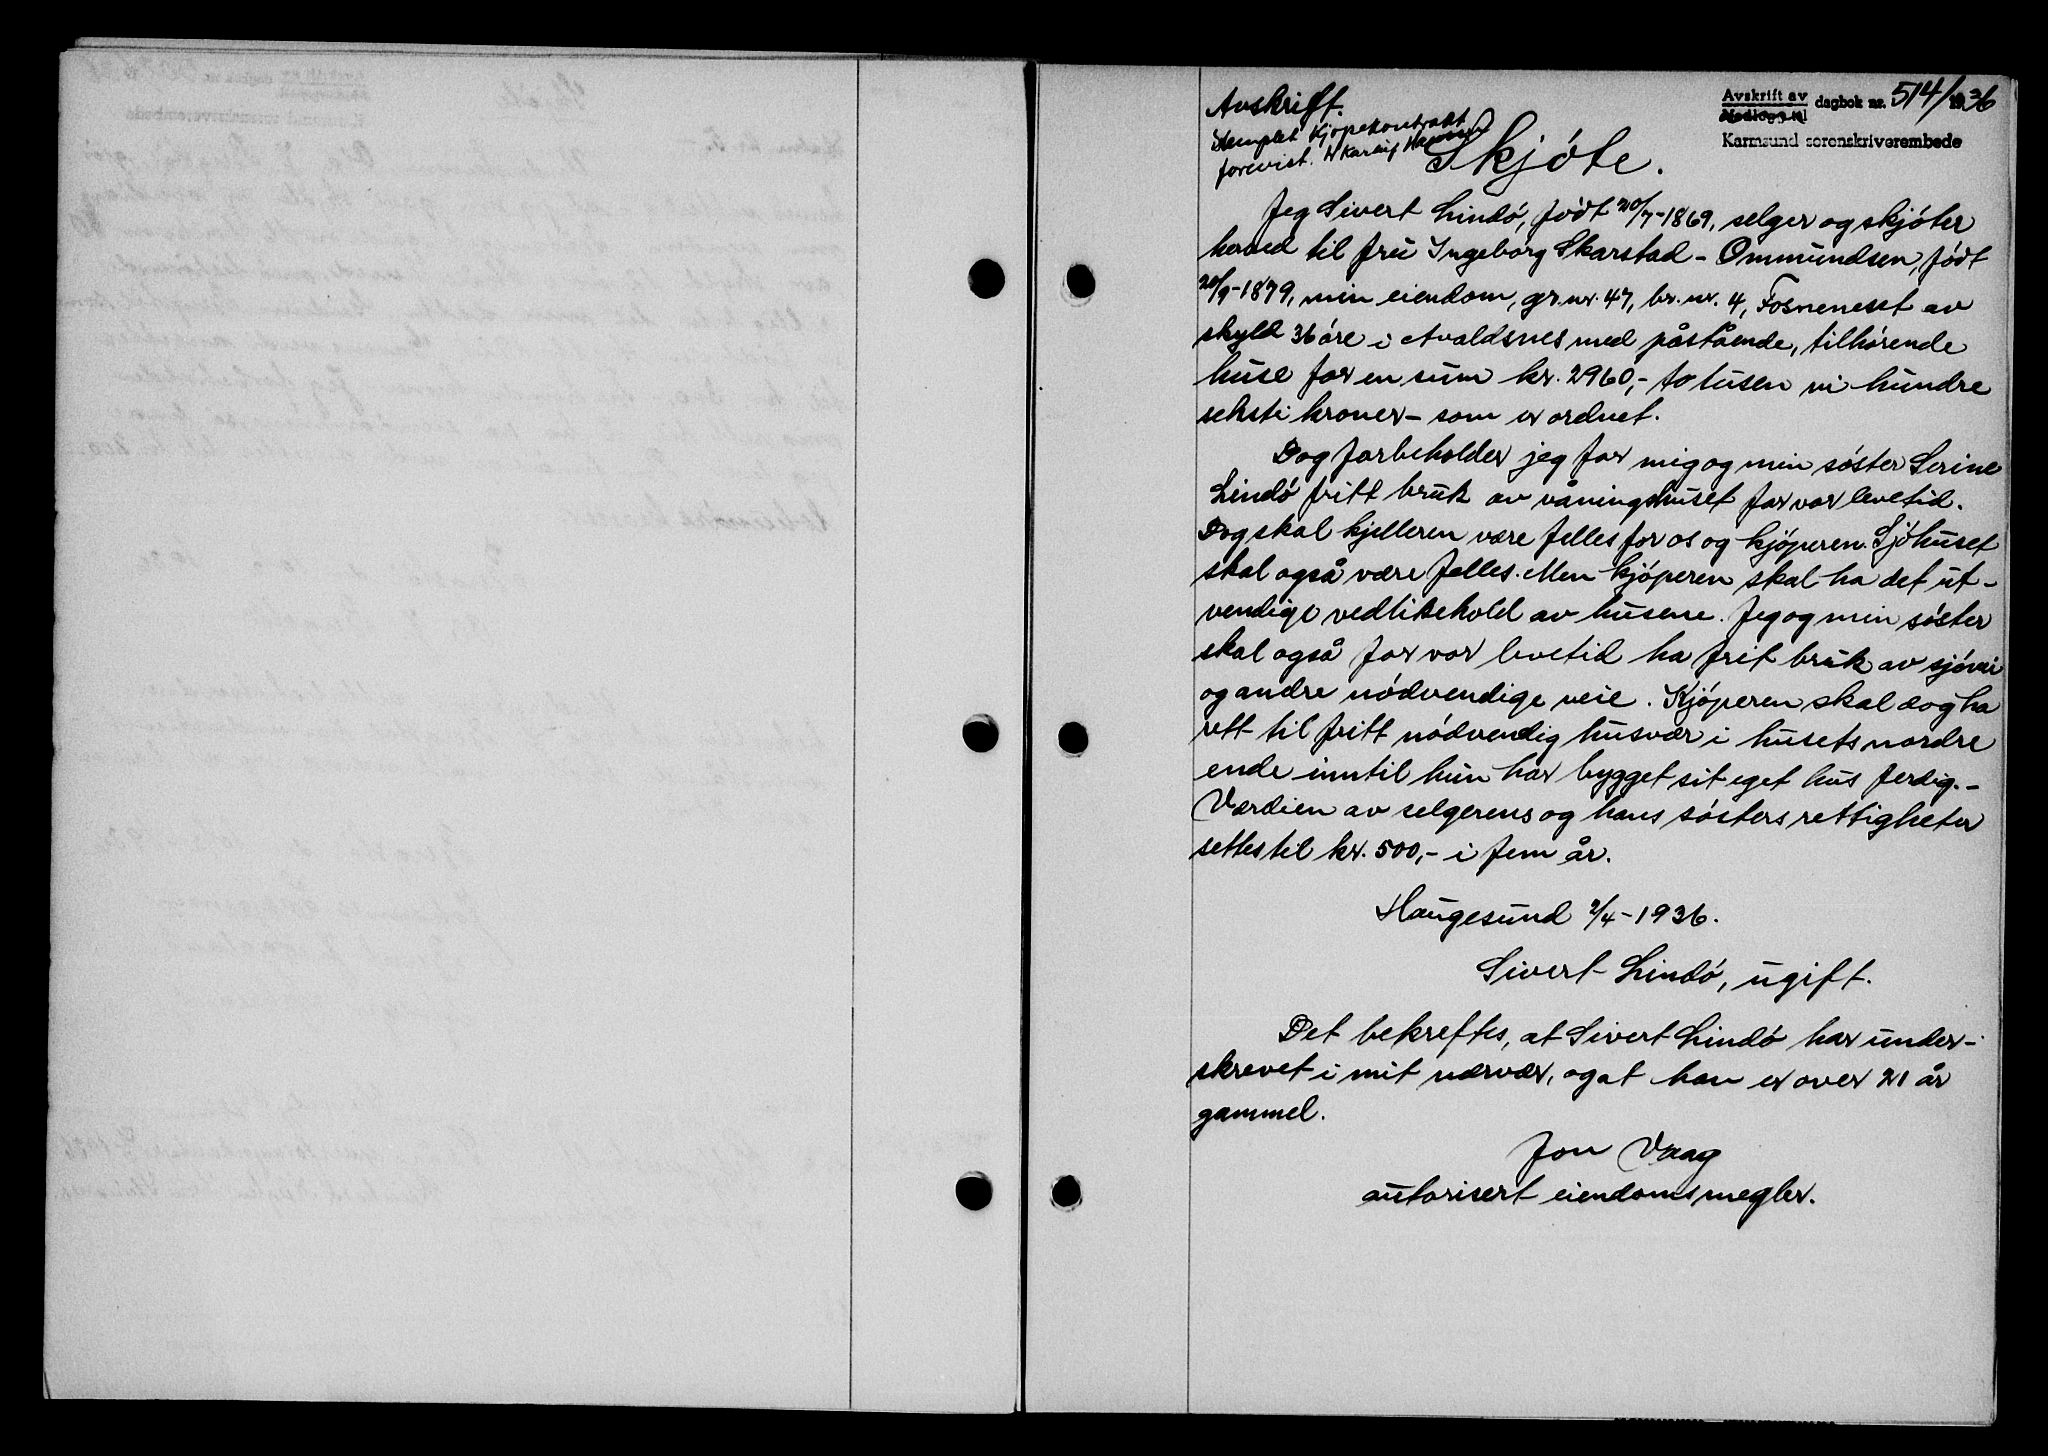 Avskrift av dagbok nr. 514/1936
Karmsund sorenskriverembede
Avskrift.
Stemplet Kjøpekontrakt
forevist.
Skjøte.
Jeg Sivert Lindø, født 20/7-1869, selger og skjøter
herved til fru Ingeborg Skarstad - Ommundsen, født
20/9-1879, min eiendom, gr.nr. 47, br. nr. 4, Fosneneset av
skyld 36 øre i Avaldsnes med påstående, tilhørende
huse for en sum kr. 2960,- to tusen ni hundre
seksti kroner - som er ordnet.
Dog forbeholder jeg for mig og min søster Serine
Lindø fritt bruk av våningshuset for vor levetid.
Dog skal kjelleren være felles for os og kjøperen. Sjøhuset
skal også være felles. Men kjøperen skal ha det ut-
vendige vedlikehold av husene. Jeg og min søster
skal også for vor levetid ha frit bruk av sjøvei
og andre nødvendige veie. Kjøperen skal dog ha
rett til fritt nødvendig husvær i husets nordre
ende inntil hun har bygget sit eget hus ferdig.-
Verdien av selgerens og hans søsters rettigheter
settes til kr. 500,- i fem år.
Haugesund 2/4-1936.
Sivert Lindø, ugift.
Det bekreftes, at Sivert Lindø har under-
skrevet i mit nærvær, og at han er over 21 år
gammel.
Jon Vaag
autorisert eiendomsmegler.